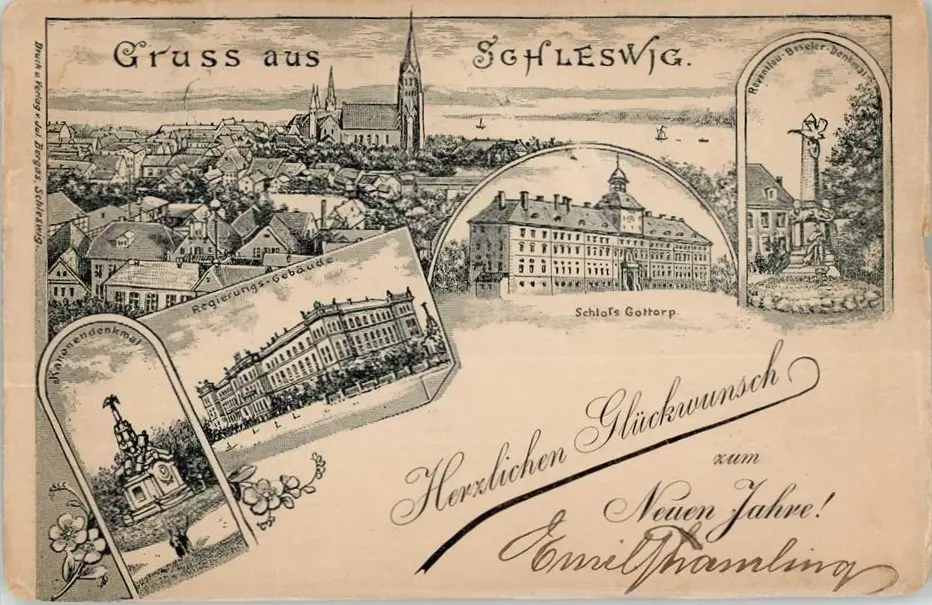 Gruss aus Schleswig.
Reventlou-Beseler-Denkmal
Druck u. Verlag v. Jul. Bergas, Schleswig
Schloſs Gottorp
Regierungs-Gebäude
Kanonendenkmal
Herzlichen Glückwunsch
zum
Neuen Jahre!
Emil